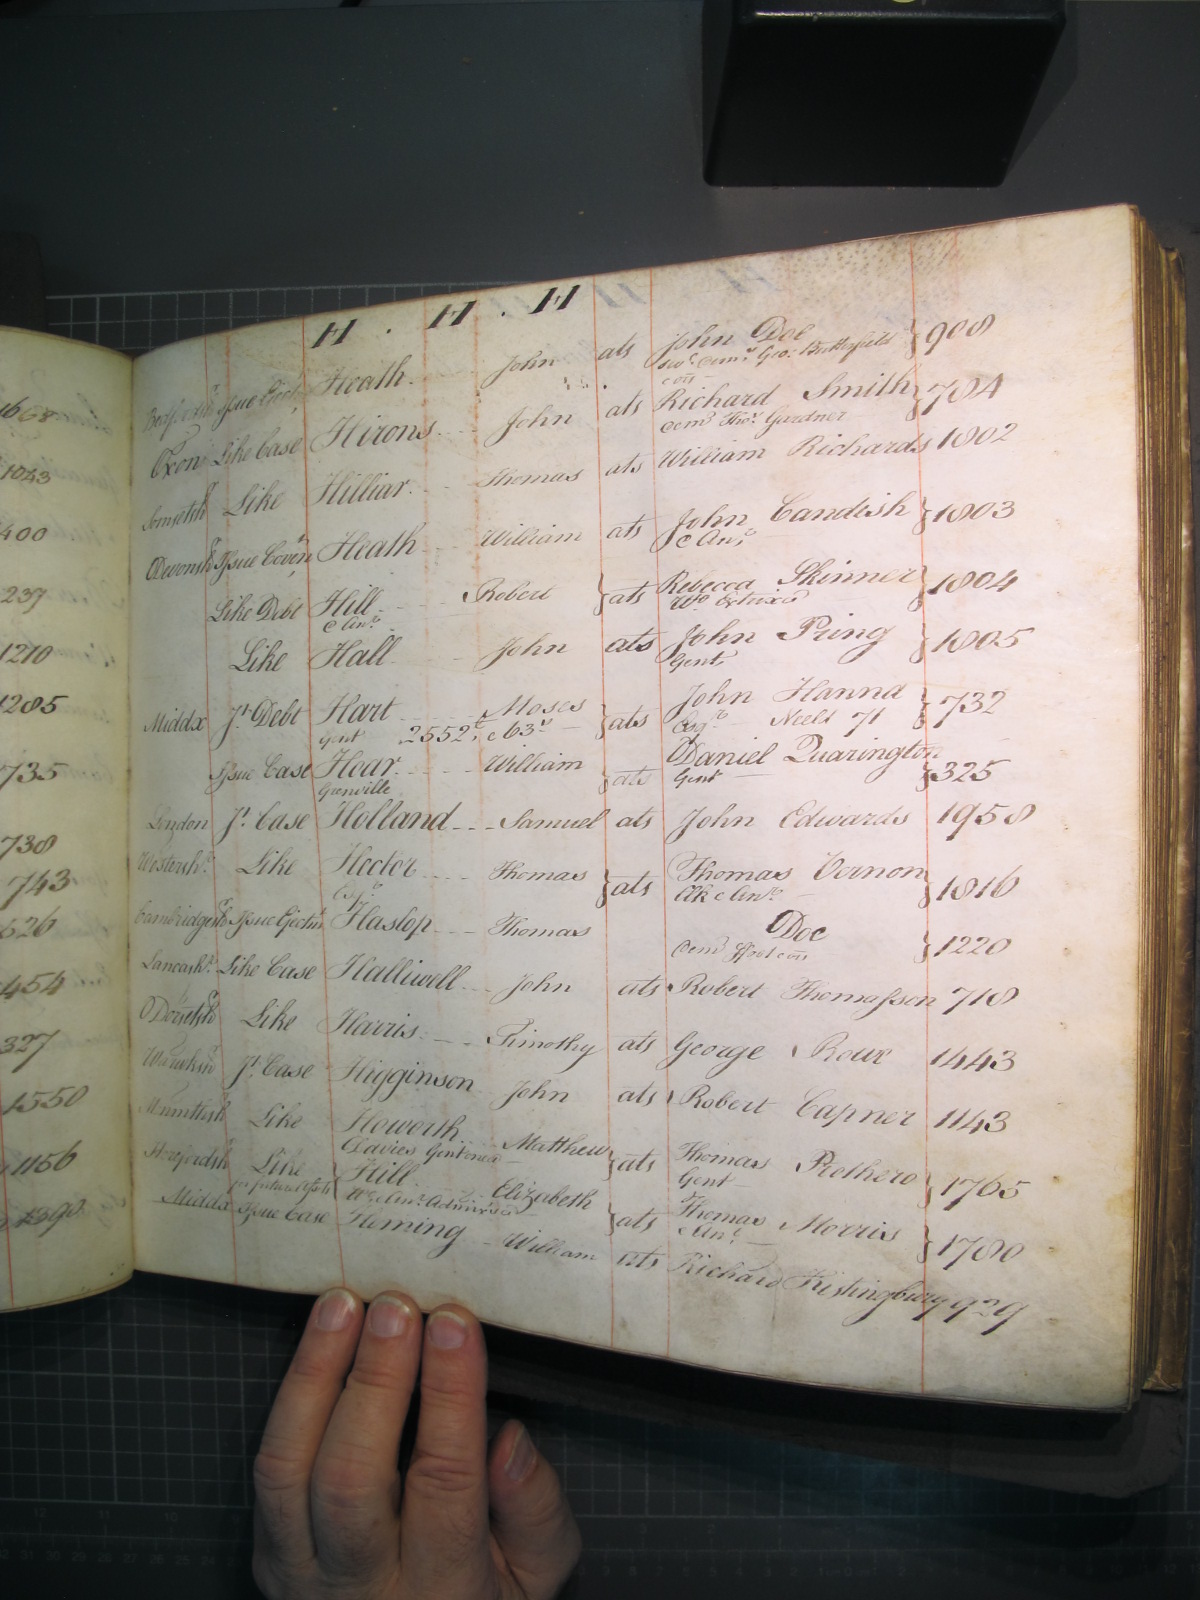 1668
1043
400
237
1210
1285
735
738
743
526
454
327
1550
1156
H . H . H
Bedfordsh Issue Eject Heath John ats John Doe 908
sev.l dem.s Geo: Butterfield
con
Oxon Like Case Hirons John ats Richard Smith 784
dem Tho.s Gardner
Somsetsh Like Hilliar Thomas ats William Richards 1802
Devonsh Issue Coven Heath William ats John Candish 1803
e an.r
Like Debt Hill Robert ats Rebecca Skinner 1804
e an.r W.o Extrix
Like Hall John ats John Pring 1805
Gent
Middx J.t Debt Hart Moses ats John Hanna 732
Gent 2552 £ c 63.s Esq.r Neels 71
Issue Case Hoar William ats Daniel Quarington 325
Grenville Gent
London J.t Case Holland Samuel ats John Edwards 1958
Worstersh.r Like Hector Thomas ats Thomas Vernon 1816
Esq.r Clk e an.r
Cambridgesh Issue Ejectm Haslop Thomas Doe 1220
dem con
Lancash.r Like Case Halliwell John ats Robert Thomasson 718
Dorsetsh Like Harris Timothy ats George Roux 1443
Warwksh J.t Case Higginson John ats Robert Capner 1143
Monmthsh Like Howorth Matthew ats Thomas Prothero 1765
Davies Gent one Gent
Herefordsh Like Hill Elizabeth ats Thomas Morris 1780
for future Assets W.o e an.r Admix e an.r
Middx Issue Case Heming William ats Richard 929